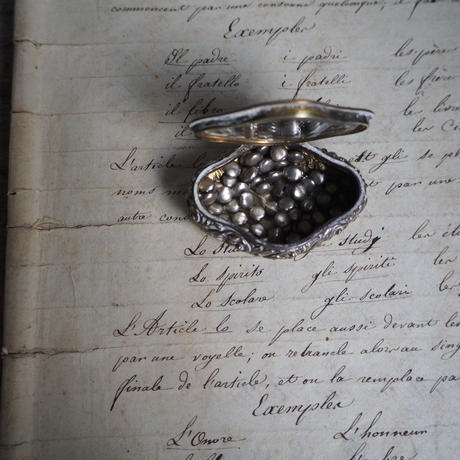 commencent par une consonne quelconque, il
Exemples
Il padre i padri les père
il fratello i fratelli les frère
il libro le livre
il les
L'article est gli se pl
noms par une v
autre con
Lo stu gli studj les étu
Lo spirito gli spiriti les
Lo scolare gli scolari les
L'Article lo se place aussi devant les
par une voyelle; on retranche alors au sing
finale de l'article, et on la remplace pa
Exemples
L'Onore L'honneur